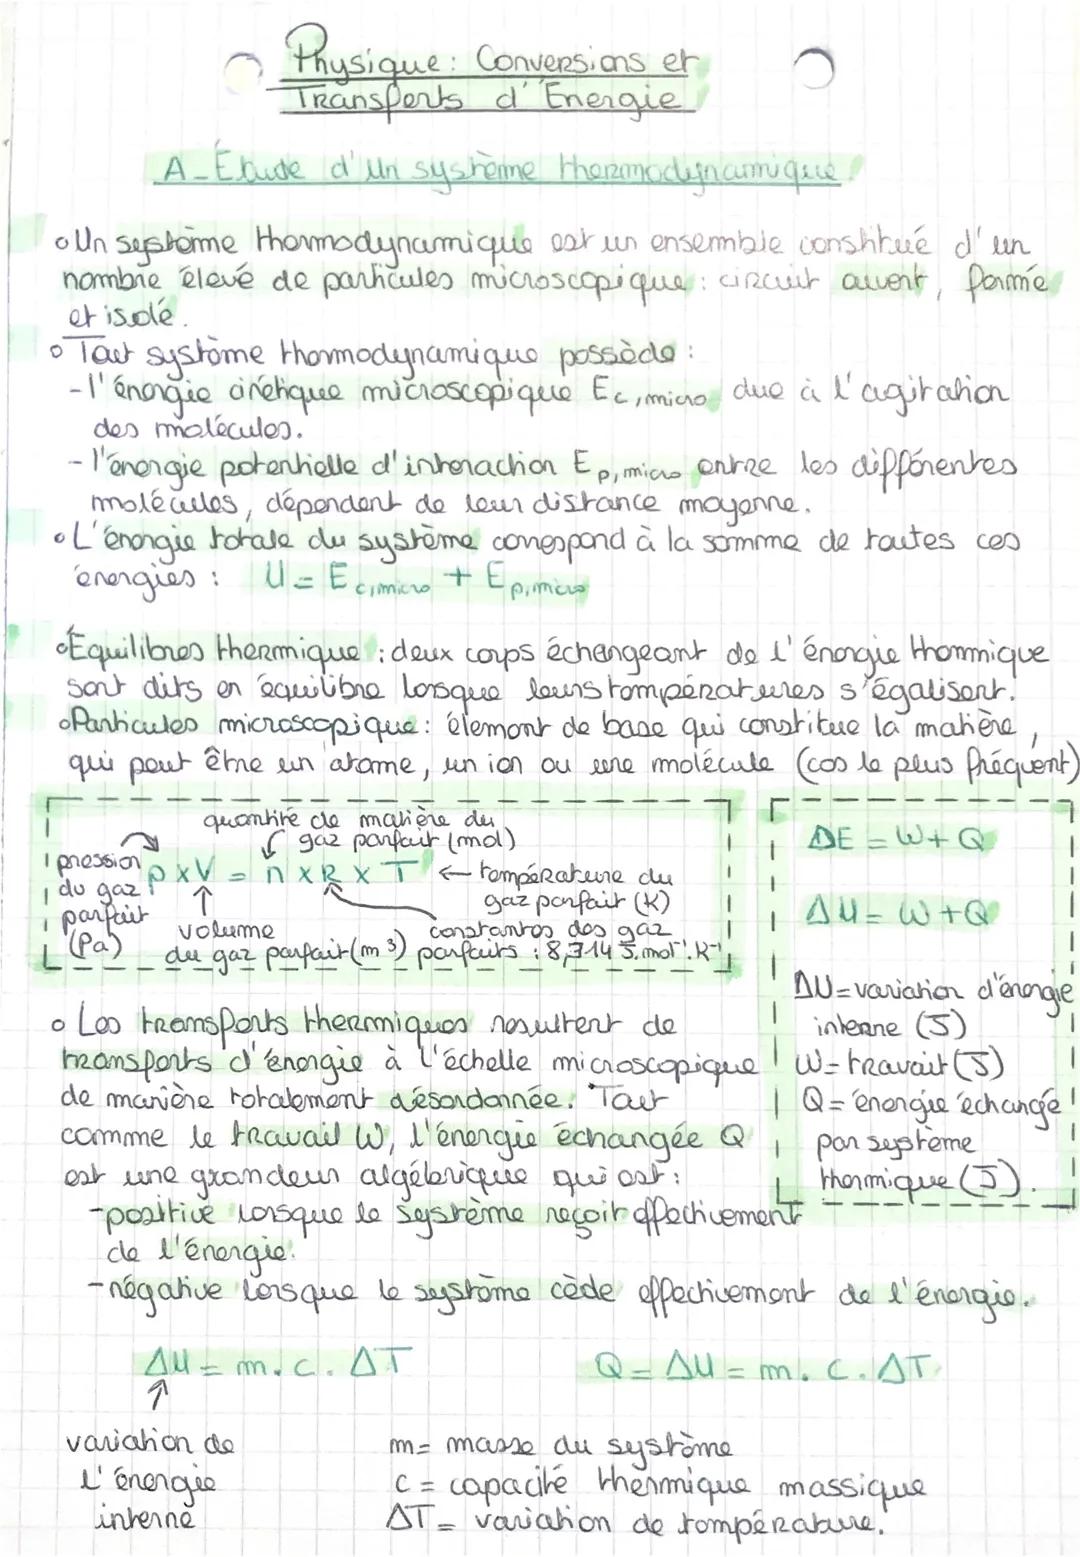 Physique : Conversions et
Transferts d'Énergie
A - Étude d'un système thermodynamique
o Un système thermodynamique est un ensemble constitué d'un
nombre élevé de particules microscopique : circuit ouvert, fermé
et isolé.
o Tout système thermodynamique possède :
- l'énergie cinétique microscopique Ec,micro due à l'agitation
des molécules.
- l'énergie potentielle d'interaction Ep,micro entre les différentes
molécules, dépendent de leur distance moyenne.
o L'énergie totale du système correspond à la somme de toutes ces
énergies : U = Ec,micro + Ep,micro
o Équilibres thermique : deux corps échangeant de l'énergie thermique
sont dits en équilibre lorsque leurs températures s'égalisent.
o Particules microscopique : élément de base qui constitue la matière,
qui peut être un atome, un ion ou une molécule (cas le plus fréquent)
quantité de matière du
gaz parfait (mol)
pression
du gaz
parfait
(Pa)
p x V = n x R x T ← température du
gaz parfait (K)
volume
du gaz parfait (m³)
constantes des gaz
parfaits : 8,314 J.mol⁻¹.K⁻¹
ΔE = W + Q
ΔU = W + Q
ΔU = variation d'énergie
interne (J)
W = travail (J)
Q = énergie échangé
par système
thermique (J).
o Les transferts thermiques résultent de
transferts d'énergie à l'échelle microscopique
de manière totalement désordonnée. Tout
comme le travail W, l'énergie échangée Q
est une grandeur algébrique qui est :
- positive lorsque le système reçoit effectivement
de l'énergie.
- négative lorsque le système cède effectivement de l'énergie.
ΔU = m . c . ΔT
Q = ΔU = m . c . ΔT
variation de
l'énergie
interne
m = masse du système
c = capacité thermique massique
ΔT = variation de température.